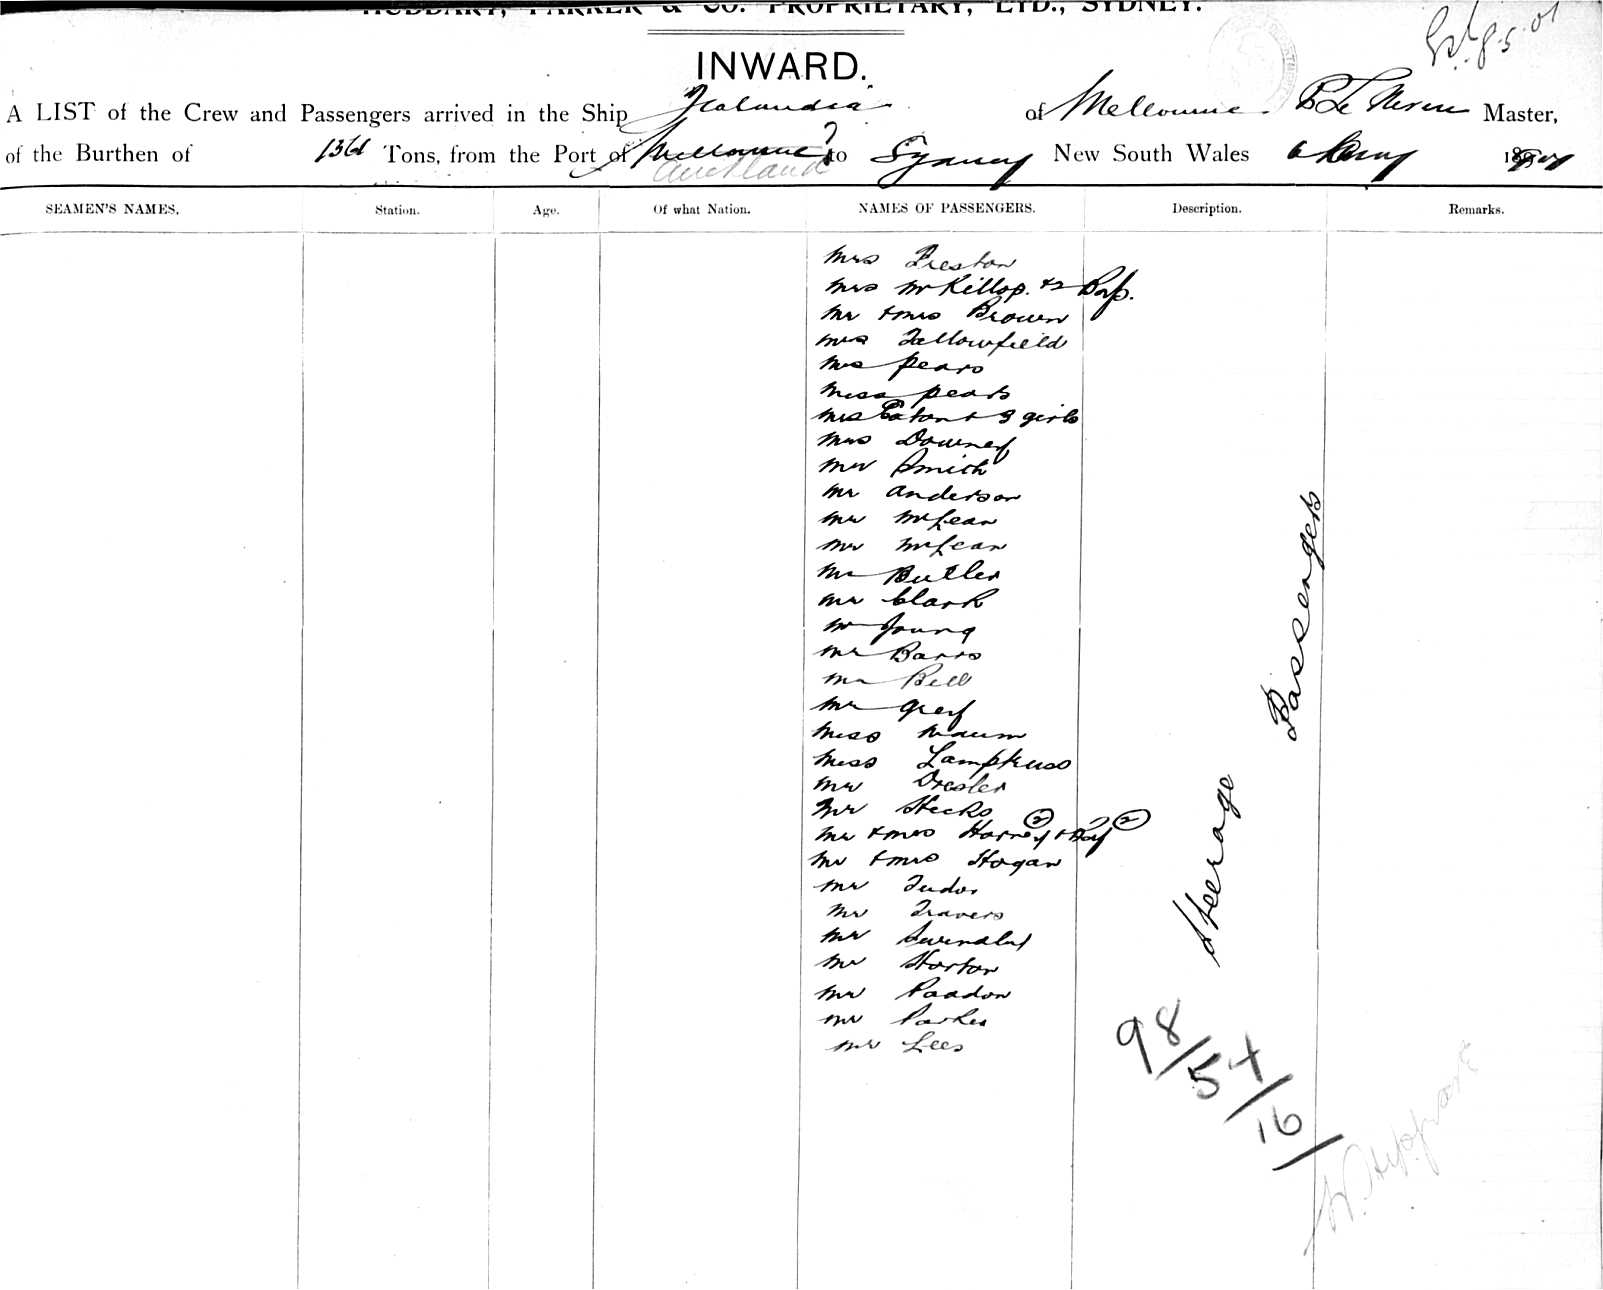 HUDDART, PARKER & CO. PROPRIETARY, LTD., SYDNEY.
8.5.01
INWARD.
A LIST of the Crew and Passengers arrived in the Ship Zealandia of Melbourne Master,
of the Burthen of 136 Tons, from the Port of Melbourne ? to Sydney New South Wales 1901
Auckland
SEAMEN'S NAMES. Station. Age. Of what Nation. NAMES OF PASSENGERS. Description. Remarks.
Mrs Preston
Mrs McKillop. + 2 Boys.
Mr + Mrs Brown
Mrs Fallowfield
Mrs Pears
Miss Pears
Mrs Eaton + 3 girls
Mrs Downey
Mr Smith
Mr Anderson
Mr McLean
Mr McLean
Mr Butler
Mr Clark
Mr Young
Mr Barrs
Mr Bell
Mr Grey
Miss Maum
Miss
Mr Dresler
Mr Hecks
Mr + Mrs Horney 2 + Boy 2
Mr + Mrs Hogan
Mr Tudor
Mr Travers
Mr
Mr Horton
Mr Paddon
Mr Parkes
Mr Lees
Steerage Passengers
98/54/16/